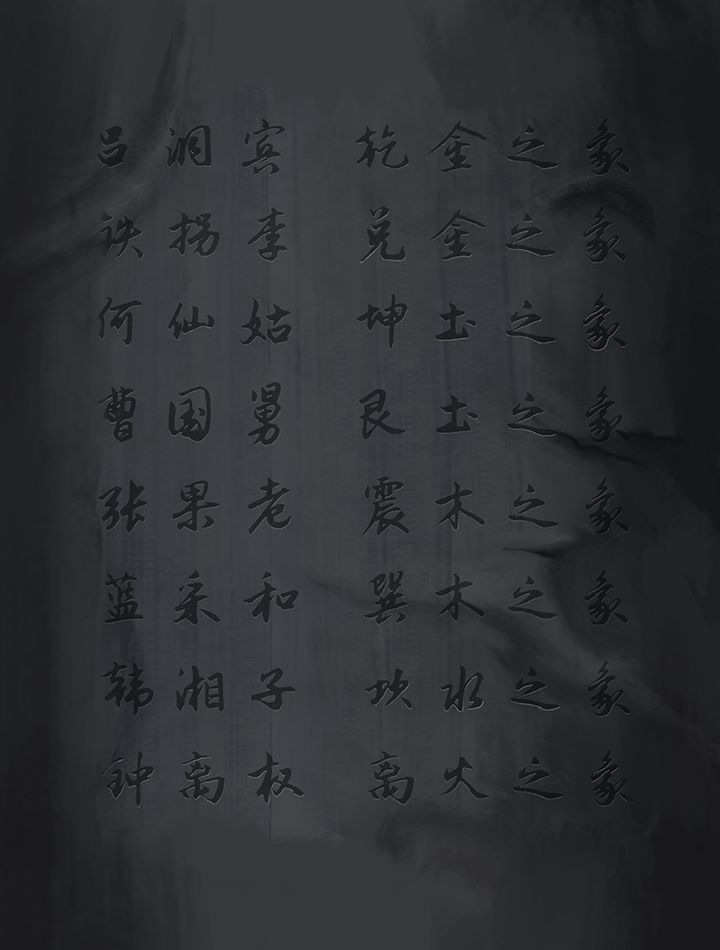 吕洞宾 乾金之象
铁拐李 兑金之象
何仙姑 坤土之象
曹国舅 艮土之象
张果老 震木之象
蓝采和 巽木之象
韩湘子 坎水之象
钟离权 离火之象